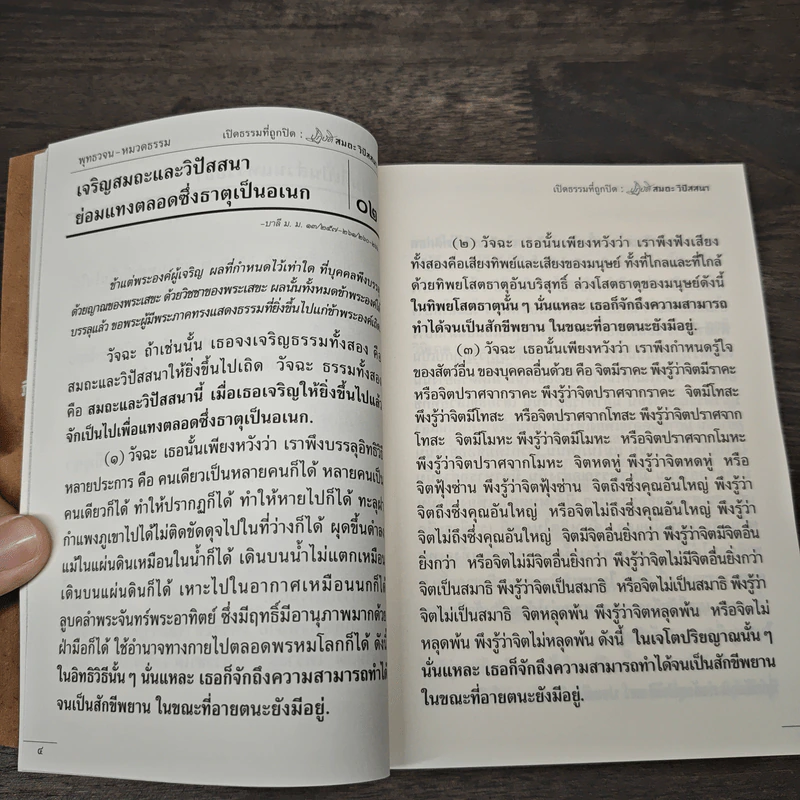 พุทธวจน-หมวดธรรม
เปิดธรรมที่ถูกปิด : ปฏิบัติ สมถะ วิปัสสนา
เจริญสมถะและวิปัสสนา
ย่อมแทงตลอดซึ่งธาตุเป็นอเนก
๐๒
-บาลี ม. ม. ๑๓/๒๕๗-๒๖๑/๒๖๐-
ข้าแต่พระองค์ผู้เจริญ ผลที่กำหนดไว้เท่าใด ที่บุคคลพึงบรรลุ
ด้วยญาณของพระเสขะ ด้วยวิชชาของพระเสขะ ผลนั้นทั้งหมดข้าพระองค์ได้
บรรลุแล้ว ขอพระผู้มีพระภาคทรงแสดงธรรมที่ยิ่งขึ้นไปแก่ข้าพระองค์เถิด
วัจฉะ ถ้าเช่นนั้น เธอจงเจริญธรรมทั้งสอง คือ
สมถะและวิปัสสนาให้ยิ่งขึ้นไปเถิด วัจฉะ ธรรมทั้งสอง
คือ สมถะและวิปัสสนานี้ เมื่อเธอเจริญให้ยิ่งขึ้นไปแล้ว
จักเป็นไปเพื่อแทงตลอดซึ่งธาตุเป็นอเนก.
(๑) วัจฉะ เธอนั้นเพียงหวังว่า เราพึงบรรลุอิทธิวิธี
หลายประการ คือ คนเดียวเป็นหลายคนก็ได้ หลายคนเป็น
คนเดียวก็ได้ ทำให้ปรากฏก็ได้ ทำให้หายไปก็ได้ ทะลุฝา
กำแพงภูเขาไปได้ไม่ติดขัดดุจไปในที่ว่างก็ได้ ผุดขึ้นดำลง
แม้ในแผ่นดินเหมือนในน้ำก็ได้ เดินบนน้ำไม่แตกเหมือน
เดินบนแผ่นดินก็ได้ เหาะไปในอากาศเหมือนนกก็ได้
ลูบคลำพระจันทร์พระอาทิตย์ ซึ่งมีฤทธิ์มีอานุภาพมากด้วย
ฝ่ามือก็ได้ ใช้อำนาจทางกายไปตลอดพรหมโลกก็ได้ ดังนี้
ในอิทธิวิธีนั้น ๆ นั่นแหละ เธอก็จักถึงความสามารถทำได้
จนเป็นสักขีพยาน ในขณะที่อายตนะยังมีอยู่.
๔
เปิดธรรมที่ถูกปิด : ปฏิบัติ สมถะ วิปัสสนา
(๒) วัจฉะ เธอนั้นเพียงหวังว่า เราพึงฟังเสียง
ทั้งสองคือเสียงทิพย์และเสียงของมนุษย์ ทั้งที่ไกลและที่ใกล้
ด้วยทิพยโสตธาตุอันบริสุทธิ์ ล่วงโสตธาตุของมนุษย์ดังนี้
ในทิพยโสตธาตุนั้น ๆ นั่นแหละ เธอก็จักถึงความสามารถ
ทำได้จนเป็นสักขีพยาน ในขณะที่อายตนะยังมีอยู่.
(๓) วัจฉะ เธอนั้นเพียงหวังว่า เราพึงกำหนดรู้ใจ
ของสัตว์อื่น ของบุคคลอื่นด้วย คือ จิตมีราคะ พึงรู้ว่าจิตมีราคะ
หรือจิตปราศจากราคะ พึงรู้ว่าจิตปราศจากราคะ จิตมีโทสะ
พึงรู้ว่าจิตมีโทสะ หรือจิตปราศจากโทสะ พึงรู้ว่าจิตปราศจาก
โทสะ จิตมีโมหะ พึงรู้ว่าจิตมีโมหะ หรือจิตปราศจากโมหะ
พึงรู้ว่าจิตปราศจากโมหะ จิตหดหู่ พึงรู้ว่าจิตหดหู่ หรือ
จิตฟุ้งซ่าน พึงรู้ว่าจิตฟุ้งซ่าน จิตถึงซึ่งคุณอันใหญ่ พึงรู้ว่า
จิตถึงซึ่งคุณอันใหญ่ หรือจิตไม่ถึงซึ่งคุณอันใหญ่ พึงรู้ว่า
จิตไม่ถึงซึ่งคุณอันใหญ่ จิตมีจิตอื่นยิ่งกว่า พึงรู้ว่าจิตมีจิตอื่น
ยิ่งกว่า หรือจิตไม่มีจิตอื่นยิ่งกว่า พึงรู้ว่าจิตไม่มีจิตอื่นยิ่งกว่า
จิตเป็นสมาธิ พึงรู้ว่าจิตเป็นสมาธิ หรือจิตไม่เป็นสมาธิ พึงรู้ว่า
จิตไม่เป็นสมาธิ จิตหลุดพ้น พึงรู้ว่าจิตหลุดพ้น หรือจิตไม่
หลุดพ้น พึงรู้ว่าจิตไม่หลุดพ้น ดังนี้ ในเจโตปริยญาณนั้น ๆ
นั่นแหละ เธอก็จักถึงความสามารถทำได้จนเป็นสักขีพยาน
ในขณะที่อายตนะยังมีอยู่.